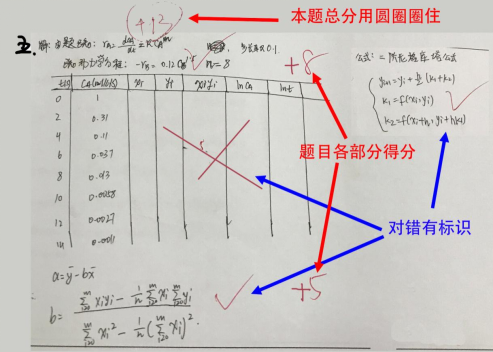 +13
本题总分用圆圈圈住
五.
解: 由题可知: r_A = dC_A/dt = kC_A^m
-r_A = 0.12 n=8
+8
公式: 二阶龙格库塔公式
y_{i+1} = y_i + h/2 (k₁+k₂)
k₁ = f(x_i, y_i)
k₂ = f(x_i+h, y_i+hk₁)
t(s) C_A(mol/L) x_i y_i x_i y_i lnC_A lnt
0 1
2 0.31
4 0.11
6 0.037
8 0.013
10 0.0058
12 0.0027
14 0.0011
题目各部分得分
对错有标识
a = ȳ - bx̄
b = (∑_{i=0}^m x_i y_i - 1/n ∑_{i=0}^m x_i ∑_{i=0}^m y_i) / (∑_{i=0}^m x_i² - 1/n (∑_{i=0}^m x_i)²)
+5